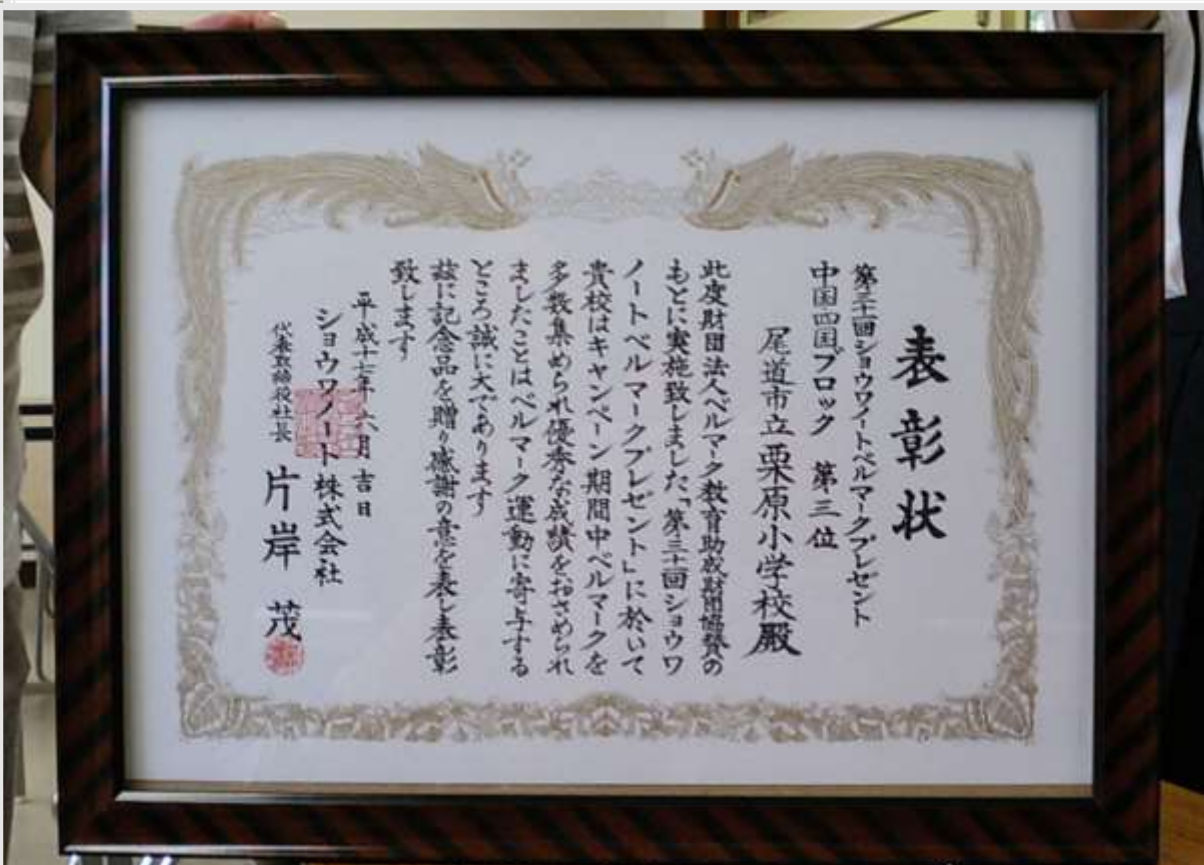 表彰状
第三十回ショウワノートベルマークプレゼント
中国四国ブロック 第三位
尾道市立栗原小学校殿
此度財団法人ベルマーク教育助成財団協賛の
もとに実施致しました「第三十回ショウワ
ノートベルマークプレゼント」に於いて
貴校はキャンペーン期間中ベルマークを
多数集められ優秀な成績をおさめられ
ましたことはベルマーク運動に寄与する
ところ誠に大であります
茲に記念品を贈り感謝の意を表し表彰
致します
平成十七年六月吉日
ショウワノート株式会社
代表取締役社長 片岸 茂